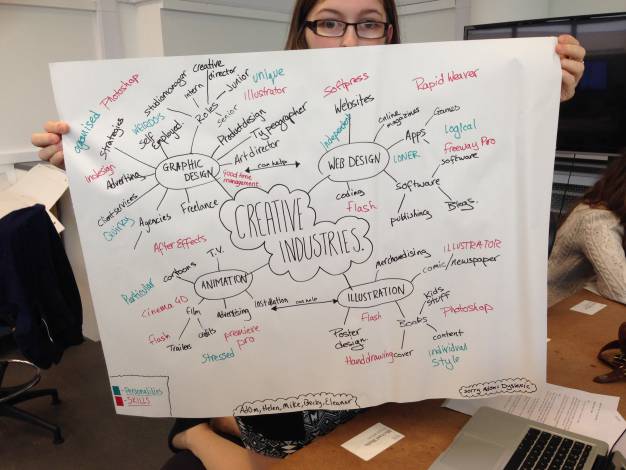 Photoshop
creative
director
unique
Softpress
Rapid Weaver
studiomanager
intern
Junior
organised
Illustrator
Websites
WEIRDOS
Roles
Senior
online
magazines
Games
Strategies
Self
Employed
Product design
Typeographer
Independent
Apps
Logical
Art director
Freeway Pro
Indesign
GRAPHIC
DESIGN
can help
WEB DESIGN
LONER
software
Advertising
food time
management
Clientservices
coding
Software
Quirky
Agencies
Freelance
flash
publishing
Blogs.
CREATIVE
INDUSTRIES.
After Effects
T.V.
merchandising
ILLUSTRATOR
cartoons
comic/newspaper
Particular
ANIMATION
ILLUSTRATION
Kids
stuff
Cinema 4D
film
Advertising
instillation
can help
Flash
Books
Photoshop
flash
adverts
premiere
pro
Poster
design.
content
Trailers
Stressed
Handdrawing
cover
individual
Style
-Personalities
-SKILLS
Adam, Helen, Mike, Becky, Eleanor